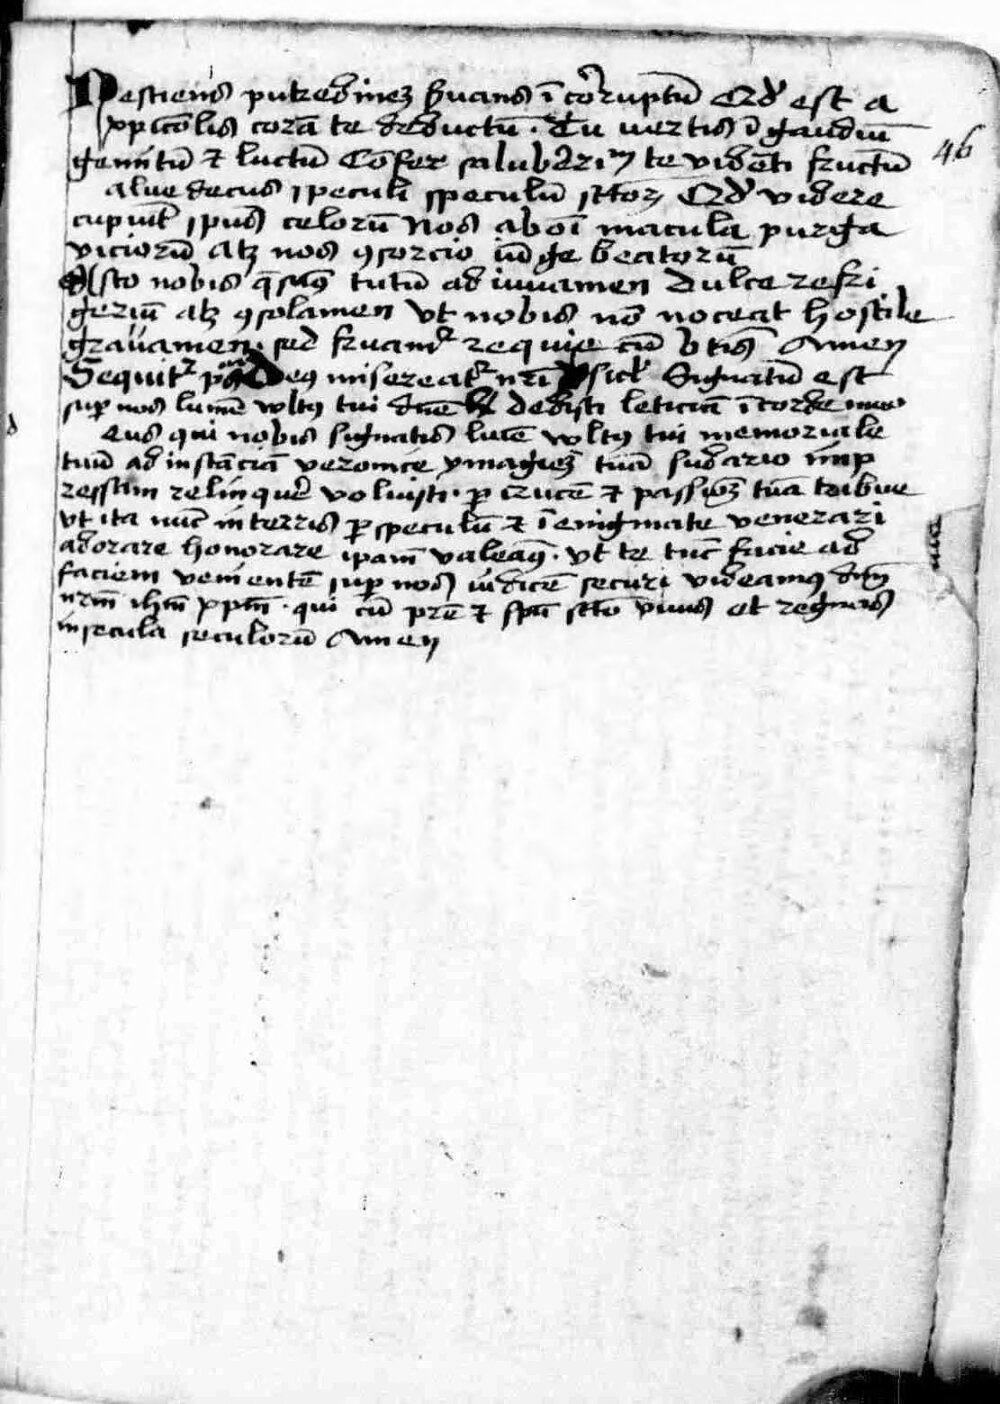 Nesciens putredinez ẜuans ĩ coꝛruptũ Qd̕ est a
xp̃icolis corã te deductũ · Tu uertis ĩ gaudiũ
gemitũ ⁊ luctũ Cõfer salubꝛeri᷑ te uidẽti fructũ
alue decus speculi speculũ sc̃toꝝ Qd̕ videre
cupiũt sp̃us celorũ Nos ab oĩ macula purga
viciorũ Atꝫ nos ꝯsorcio iũge beatorũ
Esto nobis q̃sumꝰ tutũ adiuuamen Dulce refri
geriũ atꝫ ꝯsolamen vt nobis nõ noceat hostile
grauamen · sed fruamr̕ requie cũ b̃tis Amen
Sequitr̕ pṡ Deꝰ misereatr̕ nr̃i sicl̕ Signatũ est
suꝑ nos lumẽ vultꝰ tui dñe dedisti leticiã ĩ corde meo
Eus qui nobis signatis lumĩe vultꝰ tui memoriale
tuũ ad instãciã veronice ymaginez tuã sudario imp
ressam relinquer̃ voluisti · ꝑ crucẽ ⁊ passionẽ tuã tribue
vt ita nũc in terris ꝑ speculũ ⁊ ĩ enigmate venerari
adorare honorare ip̃am valeamꝰ · vt te tũc facie ad
faciem venientẽ suꝑ nos iudicẽ securi videamꝰ dñm
nr̃m ihm̃ xp̃m · qui cũ pr̃e ⁊ sp̃u sc̃to viuis et regnas
in secula seculorũ Amen
46